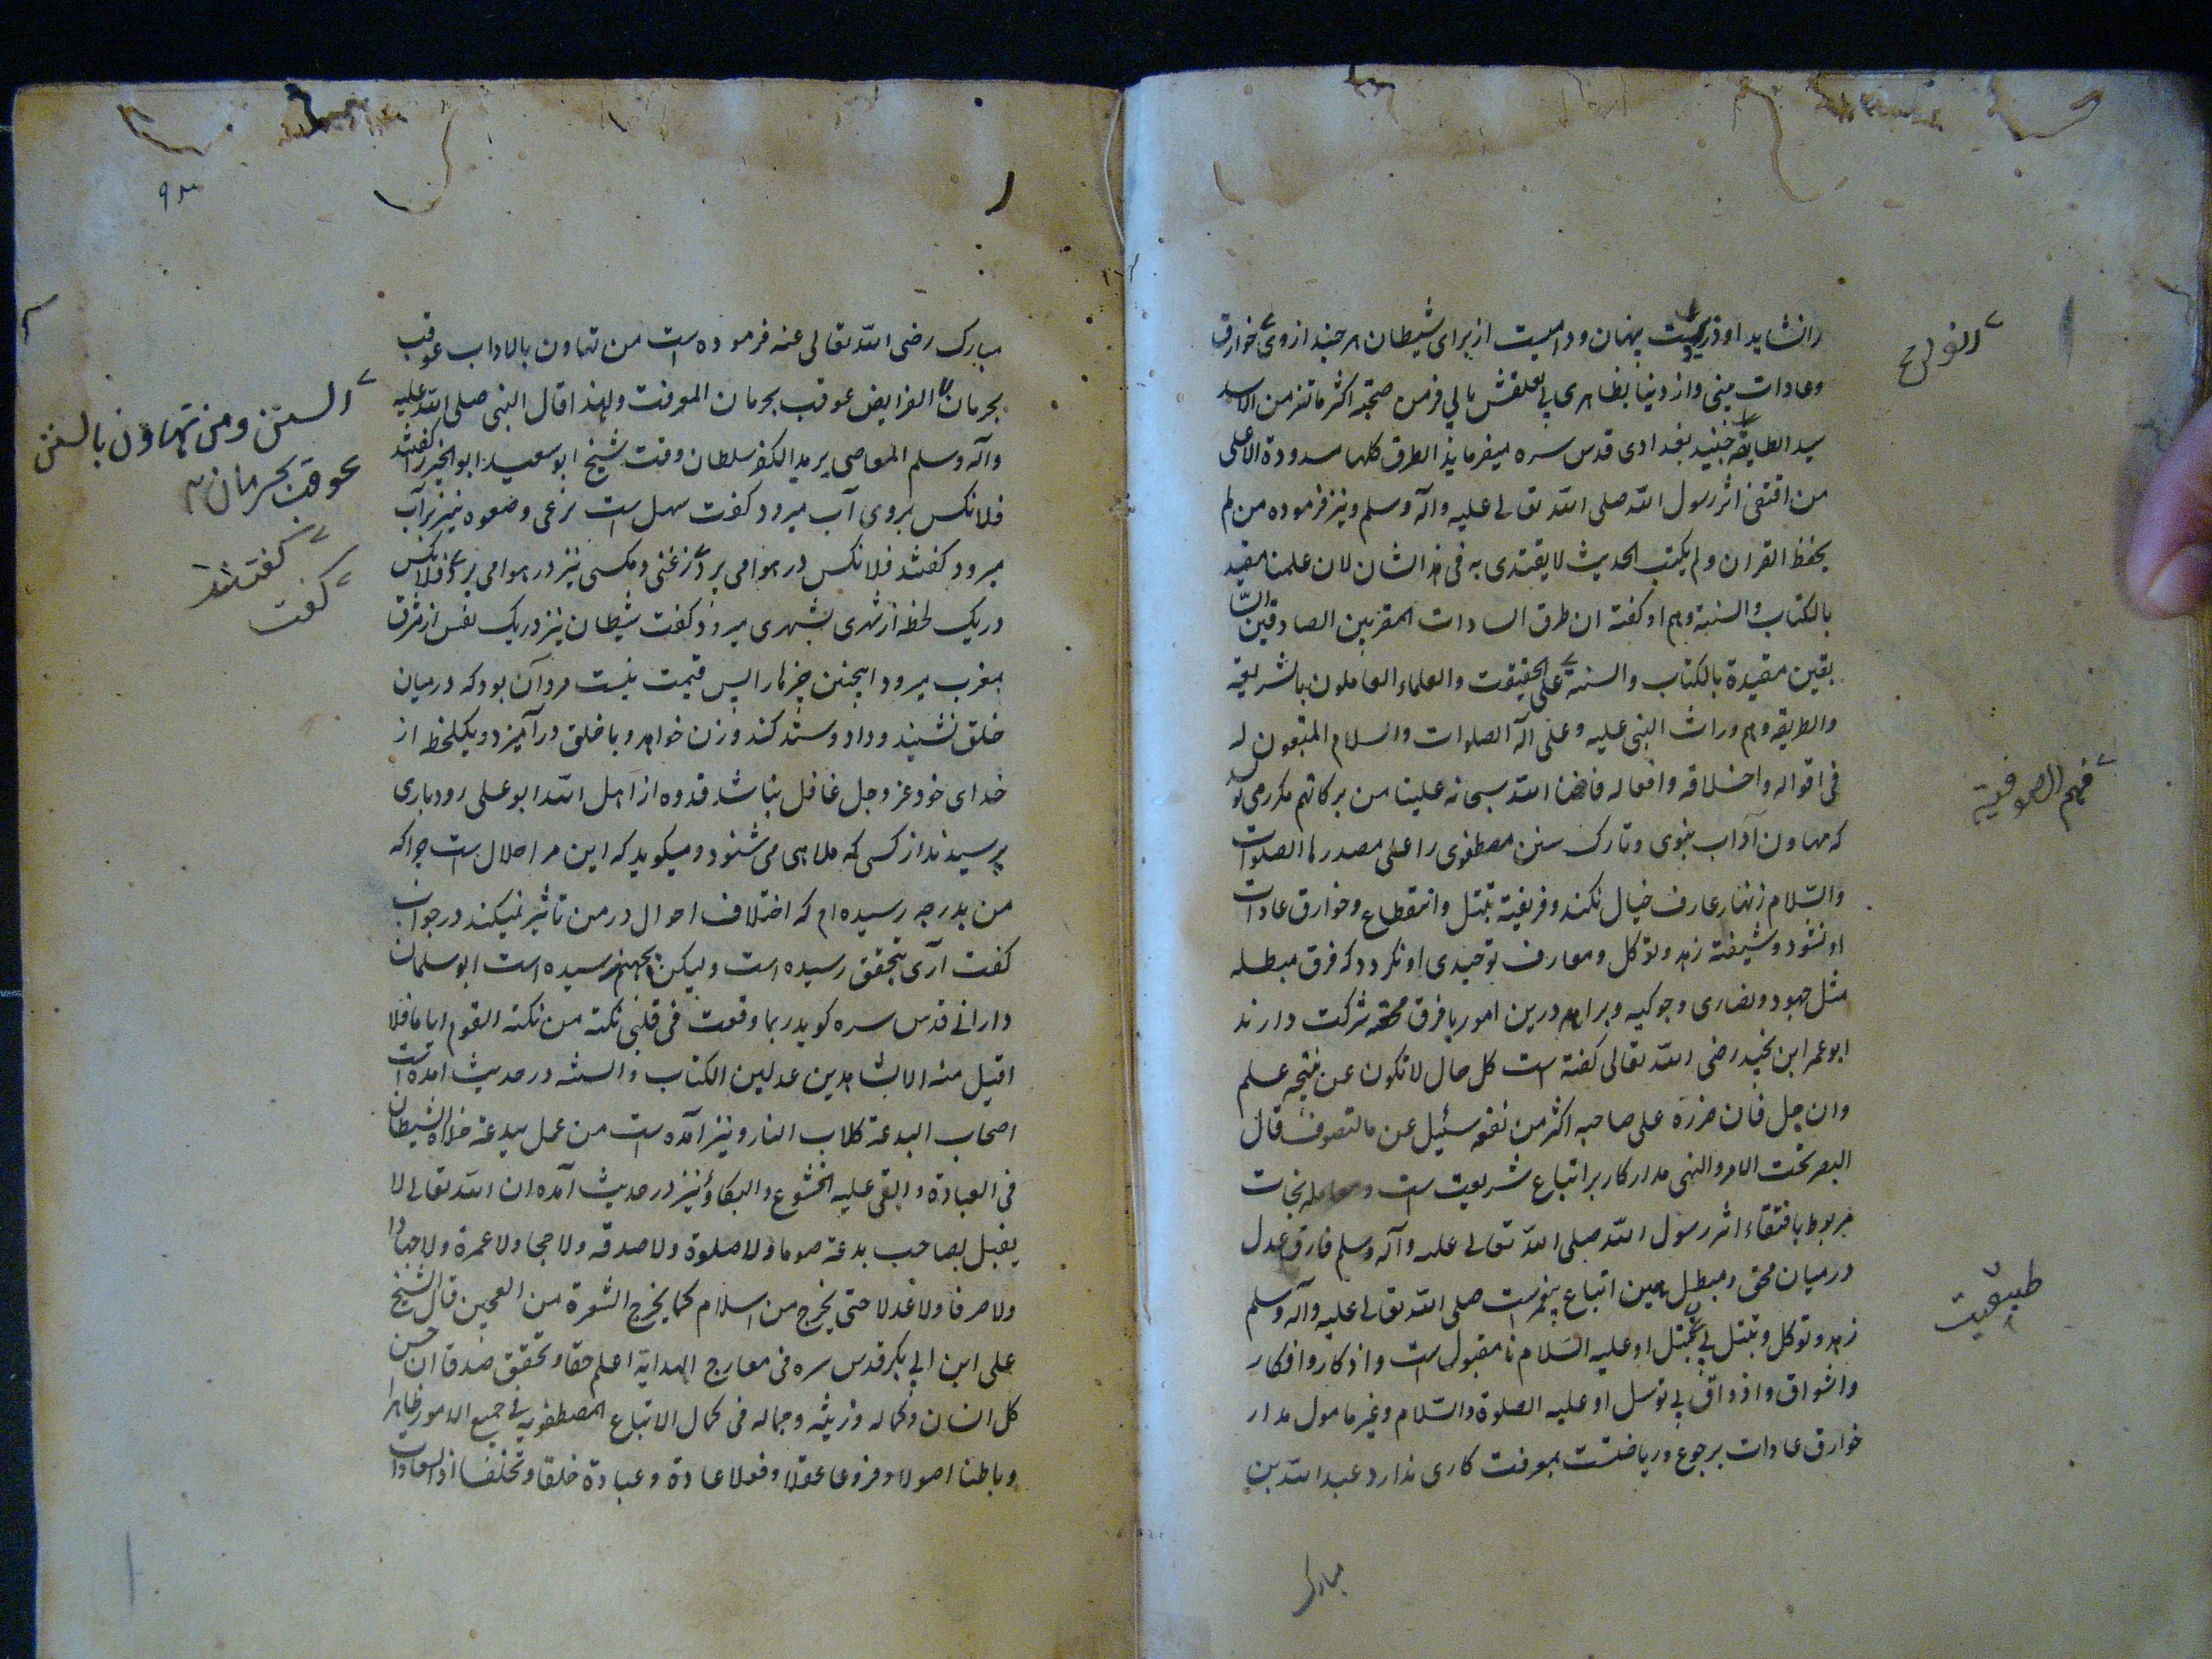 را نشاید او دزدیست پنهان و دامیست از برای شیطان هر چند از وی خوارق
وعادات بینی و از دنیا بظاهری بی تعلقش یابی فر من صحبته اکثر ما تفر من الاسد
سید الطایفه جنید بغدادی قدس سره میفرماید الطرق کلها مسدودة الا علی
من اقتفی اثر رسول الله صلی الله تعالی علیه وآله وسلم ونیز فرموده من لم
یحفظ القران ولم یکتب الحدیث لا یقتدی به فی هذا الشان لان علمنا مقید
بالکتاب والسنة وهم او گفته ان طرق السادات المقربین الصادقین السا
بقین مقیدة بالکتاب والسنة علی الحقیقت والعلماء العاملون بالشریعه
والطریقه وهم وراث النبی علیه وعلی آله الصلوات والسلام المتبعون له
فی اقواله واخلاقه وافعاله فاضنا الله سبحانه علینا من برکاتهم مکرر می گوید
که متهاون آداب نبوی وتارک سنن مصطفوی را علی مصدرها الصلوات
والسلام زنهار عارف خیال نکند وفریفته تبتل وانقطاع وخوارق عادات
او نشود وشیفته زهد وتوکل ومعارف توحیدی او نگردد که فرق مبطله
مثل جهود ونصاری وجوکیه وبراهمه درین امور با فرق محقه شرکت دارند
ابو عمر ابن نجید رضی الله تعالی گفته است کل حال لا تکون عن نتیجه علم
وان جل فان ضرره علی صاحبه اکثر من نفعه سئیل عن مالتصوف قال
البصر تحت الامر والنهی مدار کار بر اتباع شریعت است ومعامله نجات
مربوط باقتفاء اثر رسول الله صلی الله تعالی علیه وآله وسلم فارق عدل
درمیان محق ومبطل همین اتباع پیغمبرست صلی الله تعالی علیه وآله وسلم
زهد وتوکل وتبتل بی تبتل او علیه السلام نا مقبول است واذکار وافکار
واشواق واذواق بی توسل او علیه الصلوة والسلام وغیر مامول مدار
خوارق عادات برجوع وریاضتست بمعرفت کاری ندارد عبد الله بن
فهم الصوفیة
مبارک
۹۳
مبارک رضی الله تعالی عنه فرموده است من تهاون بالاداب عوقب
بحرمان الفرایض عوقب بحرمان المعرفت ولهذا قال النبی صلی الله علیه
وآله وسلم المعاصی برید الکفر سلطان وقت شیخ ابو سعید ابو الخیر را گفتند
فلانکس بروی آب میرود گفت سهل است بزغی وصعوه نیز بر آب
میرود گفتند فلانکس در هوا می پرد زغنی ومگسی نیز در هوا می پرد فلانکس
در یک لحظه از شهری بشهری میرود گفت شیطان نیز در یک نفس از مشرق
بمغرب میرود اینچنین چیزها را بس قیمت نیست مرد آن بود که درمیان
خلق نشیند وداد وستد کند وزن خواهد وبا خلق درآمیزد ویکلحظه از
خدای خود عز وجل غافل نباشد قدوه از اهل الله ابو علی رودباری
پرسیدند از کسی که ملاهی می شنود ومیگوید که این مرا حلال است چراکه
من بدرجه رسیده ام که اختلاف احوال در من تاثیر نمیکند در جواب
گفت آری بتحقق رسیده است ولیکن بجهنم رسیده است ابو سلمان
دارانی قدس سره گوید ربما وقعت فی قلبی نکته من نکته القوم ایاما فلا
اقبل منه الا بشاهدین عدلین الکتاب والسنه در حدیث امده است
اصحاب البدعة کلاب النار ونیز آمده است من عمل ببدعة خلاه الشیطان
فی العبادة والقی علیه الخشوع والبکاء ونیز در حدیث آمده ان الله تعالی لا
یقبل لصاحب بدعة صوما ولا صلوة ولا صدقه ولا حجا ولا عمرة ولا جهادا
ولا صرفا ولا عدلا حتی یخرج من اسلام کما یخرج الشعرة من العجین قال الشیخ
علی ابن ابی بکر قدس سره فی معارج الهدایة اعلم حقا وتحقق صدقا ان حسن
کل انسان وکماله وزینته وجماله فی کمال الاتباع المصطفویه فی جمیع الامور ظاهرا
وباطنا اصولا وفروعا عقلا وفعلا عادة وعبادة خلقا وتخلقا اذ السعادات
السنن ومن تهاون بالسنن
عوقب بحرمان
گفتند
گفت